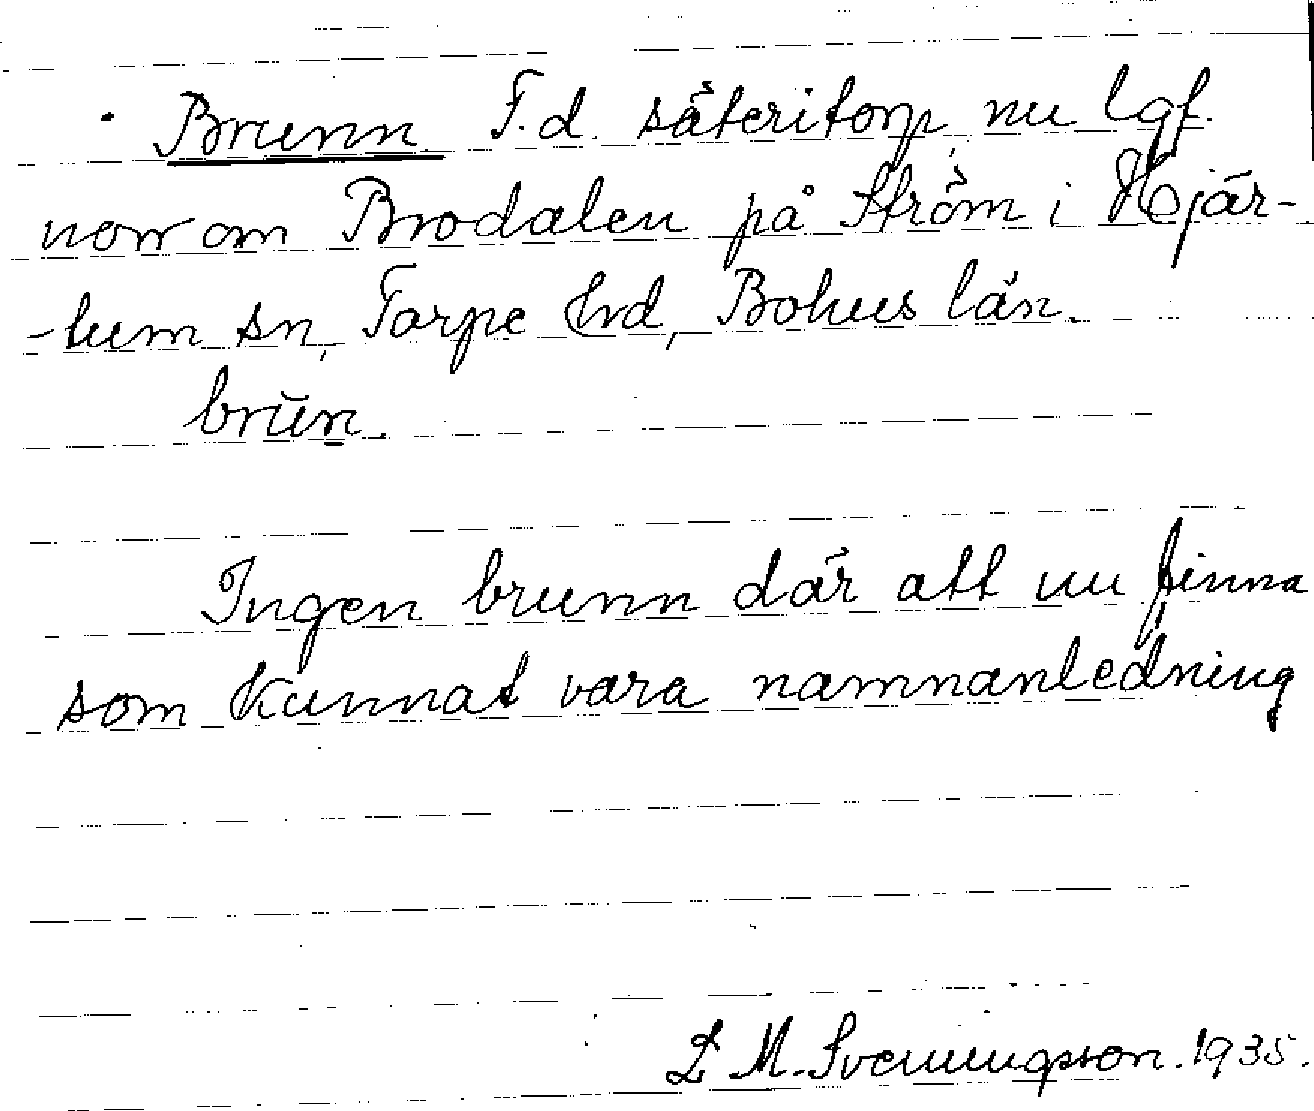 Brunn F.d. säteritorp, nu lgf.
norr om Brodalen på Ström i Hjär-
-tum sn, Torpe hrd, Bohus län.
brŭn.
Ingen brunn där att nu finna
som kunnat vara namnanledning
L M. Svenungsson. 1935.